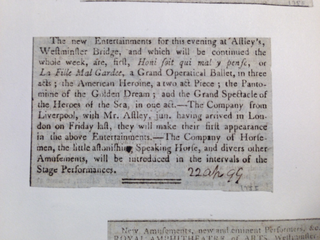 The new Entertainments for this evening at Astley's,
Westminster Bridge, and which will be continued the
whole week, are, first, Honi soit qui mal y pense, or
La Fille Mal Gardee, a Grand Operatical Ballet, in three
acts; the American Heroine, a two act Piece; the Panto-
mime of the Golden Dream; and the Grand Spectacle of
the Heroes of the Sea, in one act.—The Company from
Liverpool, with Mr. Astley, jun. having arrived in Lon-
don on Friday last, they will make their first appearance
in the above Entertainments.—The Company of Horse-
men, the little astonishing Speaking Horse, and divers other
Amusements, will be introduced in the intervals of the
Stage Performances.
22 Ap 99
New Amusements, new and eminent Performers,
ROYAL AMPHITHEATRE of ARTS, Westminster